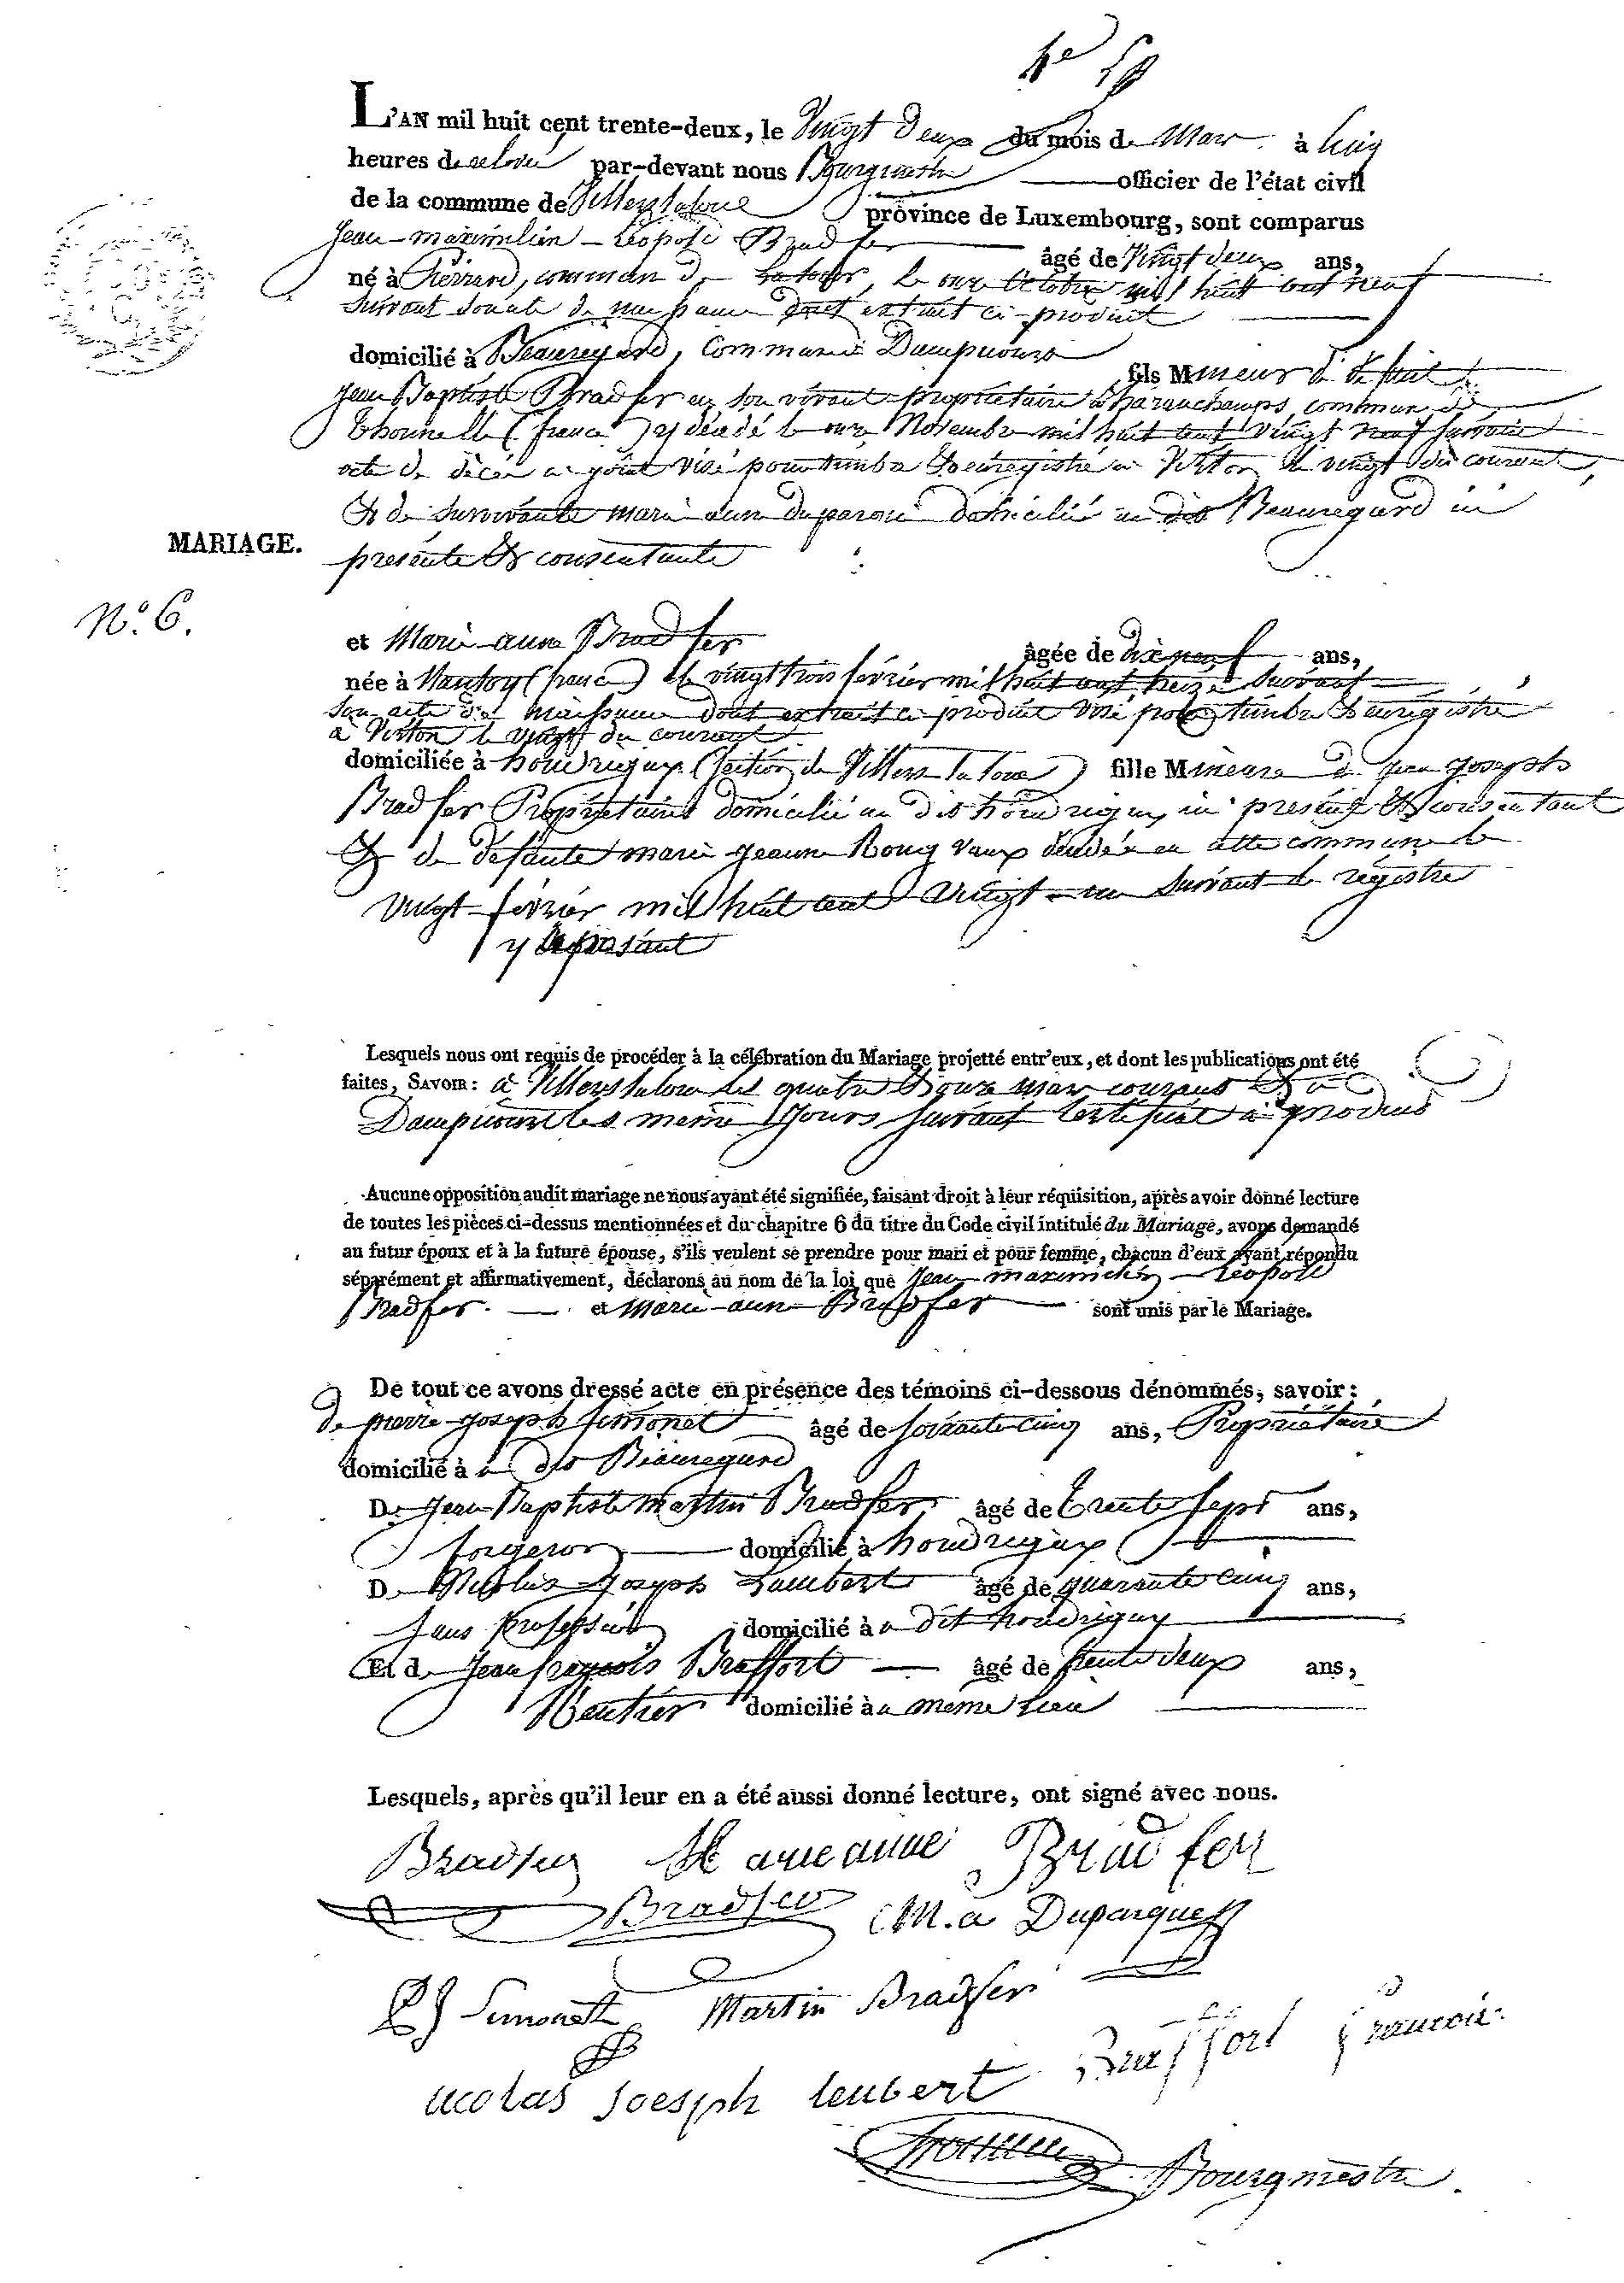 L'AN mil huit cent trente-deux, le Vingt Deux du mois de Mars à huit
heures de relevé par-devant nous Bourgmestre officier de l'état civil
de la commune de Villers la loue province de Luxembourg, sont comparus
Jean-maximilien-Léopold Bradfer âgé de Vingt deux ans,
né à commune de Latour, le onze Octobre mil huit cent neuf
suivant son acte de naissance dont extrait ci-produit
domicilié à Beauregard, Commune Dampicourt
fils Mineur de défunt
Jean Baptiste Bradfer en son vivant propriétaire à commune de
Thonnelle (france) y décédé le onze Novembre mil huit cent vingt neuf suivant
acte de décès ci joint visé pour timbre & enregistré à Virton le vingt du courant,
& de survivante marie anne duparque domiciliée au dit Beauregard ici
présente & consentante
MARIAGE.
N.° 6.
et Marie anne Bradfer âgée de dix neuf ans,
née à (france) le vingt trois février mil huit cent treize suivant
son acte de naissance dont extrait ci produit visé pour timbre & enrégistré
à Virton le vingt du courant
domiciliée à houdrigny (section de Villers la loue) fille Mineure de Jean Joseph
Bradfer Propriétaire domicilié au dit houdrigny ici présent & consentant
& de défunte marie jeanne décédée en cette commune le
vingt février mil huit cent vingt un suivant le régistre
y reposant
Lesquels nous ont requis de procéder à la célébration du Mariage projetté entr'eux, et dont les publications ont été
faites, SAVOIR : à Villers la loue les quatre & onze mars courant & à
Dampicourt les meme jours suivant certificat ci produit
Aucune opposition audit mariage ne nous ayant été signifiée, faisant droit à leur réquisition, après avoir donné lecture
de toutes les pièces ci-dessus mentionnées et du chapitre 6 du titre du Code civil intitulé du Mariage, avons demandé
au futur époux et à la future épouse, s'ils veulent se prendre pour mari et pour femme, chacun d'eux ayant répondu
séparément et affirmativement, déclarons au nom de la loi que Jean maximilien Léopold
Bradfer et Marie anne Bradfer sont unis par le Mariage.
De tout ce avons dressé acte en présence des témoins ci-dessous dénommés, savoir :
De pierre joseph simonet âgé de soixante cinq ans, Propriétaire
domicilié à au dit Beauregard
De Jean Baptiste Martin Bradfer âgé de trente sept ans,
forgeron domicilié à houdrigny
De Nicolas Joseph Lambert âgé de quarante cinq ans,
sans profession domicilié à au dit houdrigny
Et de Jean françois Braffort âgé de trente deux ans,
Rentier domicilié à au meme lieu
Lesquels, après qu'il leur en a été aussi donné lecture, ont signé avec nous.
Bradfer Marie anne Bradfer
Bradfer M. a Duparque
Simonet Martin Bradfer
Braffort francois
nicolas Joesph lembert
Bourgmestre